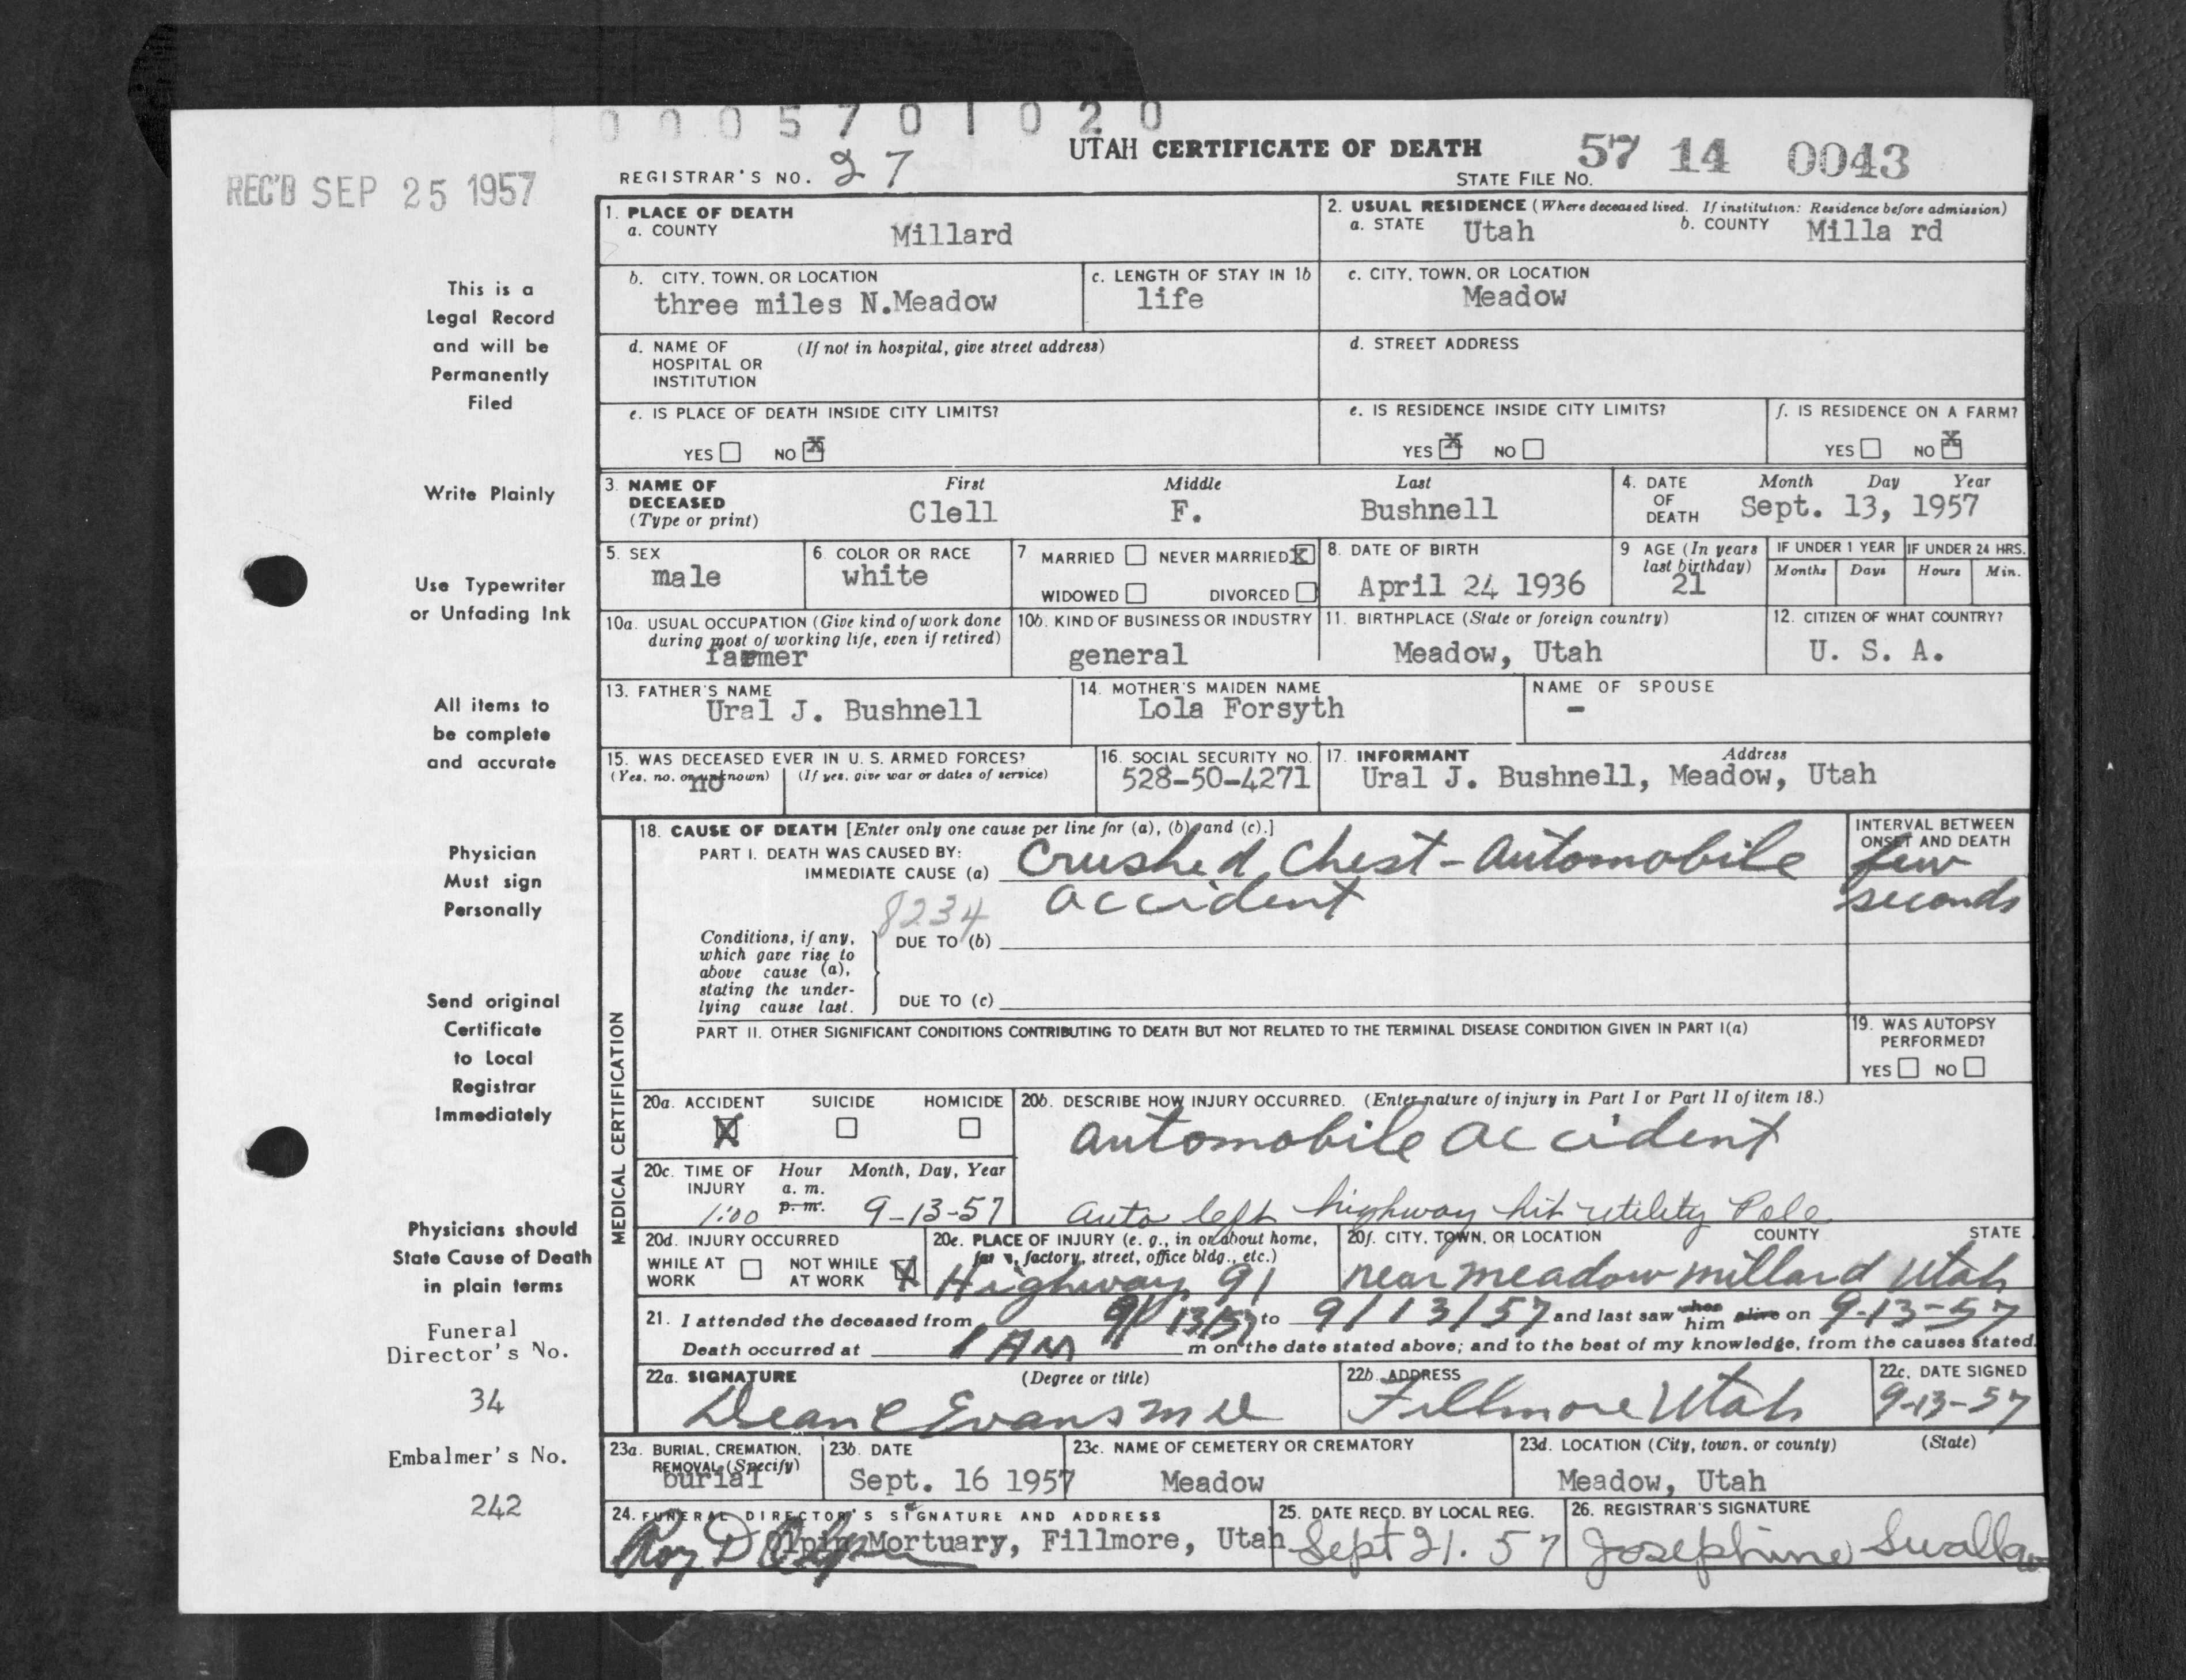 0 0 0 5 7 0 1 0 2 0
UTAH CERTIFICATE OF DEATH
57 14 0043
REC'D SEP 25 1957
REGISTRAR'S NO. 27
STATE FILE NO.
1. PLACE OF DEATH
a. COUNTY Millard
2. USUAL RESIDENCE (Where deceased lived. If institution: Residence before admission)
a. STATE Utah b. COUNTY Milla rd
b. CITY, TOWN, OR LOCATION
three miles N.Meadow
c. LENGTH OF STAY IN 1b
life
c. CITY, TOWN, OR LOCATION
Meadow
d. NAME OF (If not in hospital, give street address)
HOSPITAL OR
INSTITUTION
d. STREET ADDRESS
e. IS PLACE OF DEATH INSIDE CITY LIMITS?
YES NO X
e. IS RESIDENCE INSIDE CITY LIMITS?
YES X NO
f. IS RESIDENCE ON A FARM?
YES NO X
3. NAME OF DECEASED (Type or print)
First Middle Last
Clell F. Bushnell
4. DATE OF DEATH
Month Day Year
Sept. 13, 1957
5. SEX
male
6. COLOR OR RACE
white
7. MARRIED NEVER MARRIED X
WIDOWED DIVORCED
8. DATE OF BIRTH
April 24 1936
9 AGE (In years last birthday)
21
IF UNDER 1 YEAR IF UNDER 24 HRS.
Months Days Hours Min.
10a. USUAL OCCUPATION (Give kind of work done
during most of working life, even if retired)
farmer
10b. KIND OF BUSINESS OR INDUSTRY
general
11. BIRTHPLACE (State or foreign country)
Meadow, Utah
12. CITIZEN OF WHAT COUNTRY?
U. S. A.
13. FATHER'S NAME
Ural J. Bushnell
14. MOTHER'S MAIDEN NAME
Lola Forsyth
NAME OF SPOUSE
-
15. WAS DECEASED EVER IN U. S. ARMED FORCES?
(Yes, no, or unknown) (If yes, give war or dates of service)
no
16. SOCIAL SECURITY NO.
528-50-4271
17. INFORMANT Address
Ural J. Bushnell, Meadow, Utah
MEDICAL CERTIFICATION
18. CAUSE OF DEATH [Enter only one cause per line for (a), (b) and (c).]
PART I. DEATH WAS CAUSED BY:
IMMEDIATE CAUSE (a) Crushed Chest - Automobile
accident
8234
INTERVAL BETWEEN
ONSET AND DEATH
few
seconds
Conditions, if any,
which gave rise to
above cause (a),
stating the under-
lying cause last.
DUE TO (b)
DUE TO (c)
PART II. OTHER SIGNIFICANT CONDITIONS CONTRIBUTING TO DEATH BUT NOT RELATED TO THE TERMINAL DISEASE CONDITION GIVEN IN PART I(a)
19. WAS AUTOPSY
PERFORMED?
YES NO
20a. ACCIDENT SUICIDE HOMICIDE
X
20b. DESCRIBE HOW INJURY OCCURRED. (Enter nature of injury in Part I or Part II of item 18.)
automobile accident
Auto left highway hit utility Pole
20c. TIME OF INJURY Hour Month, Day, Year
a. m.
p. m.
1:00 9-13-57
20d. INJURY OCCURRED
WHILE AT WORK NOT WHILE AT WORK X
20e. PLACE OF INJURY (e. g., in or about home,
farm, factory, street, office bldg., etc.)
Highway 91
20f. CITY, TOWN, OR LOCATION COUNTY STATE
near meadow millard Utah
21. I attended the deceased from 9/13/57 to 9/13/57 and last saw him alive on 9-13-57
Death occurred at 1 AM m on the date stated above; and to the best of my knowledge, from the causes stated.
22a. SIGNATURE (Degree or title)
Dean C Evans MD
22b. ADDRESS
Fillmore Utah
22c. DATE SIGNED
9-13-57
23a. BURIAL, CREMATION,
REMOVAL (Specify)
burial
23b. DATE
Sept. 16 1957
23c. NAME OF CEMETERY OR CREMATORY
Meadow
23d. LOCATION (City, town, or county) (State)
Meadow, Utah
24. FUNERAL DIRECTOR'S SIGNATURE AND ADDRESS
Roy D Olpin
Olpin Mortuary, Fillmore, Utah
25. DATE RECD. BY LOCAL REG.
Sept 21. 57
26. REGISTRAR'S SIGNATURE
Josephine Swallow
This is a
Legal Record
and will be
Permanently
Filed
Write Plainly
Use Typewriter
or Unfading Ink
All items to
be complete
and accurate
Physician
Must sign
Personally
Send original
Certificate
to Local
Registrar
Immediately
Physicians should
State Cause of Death
in plain terms
Funeral
Director's No.
34
Embalmer's No.
242